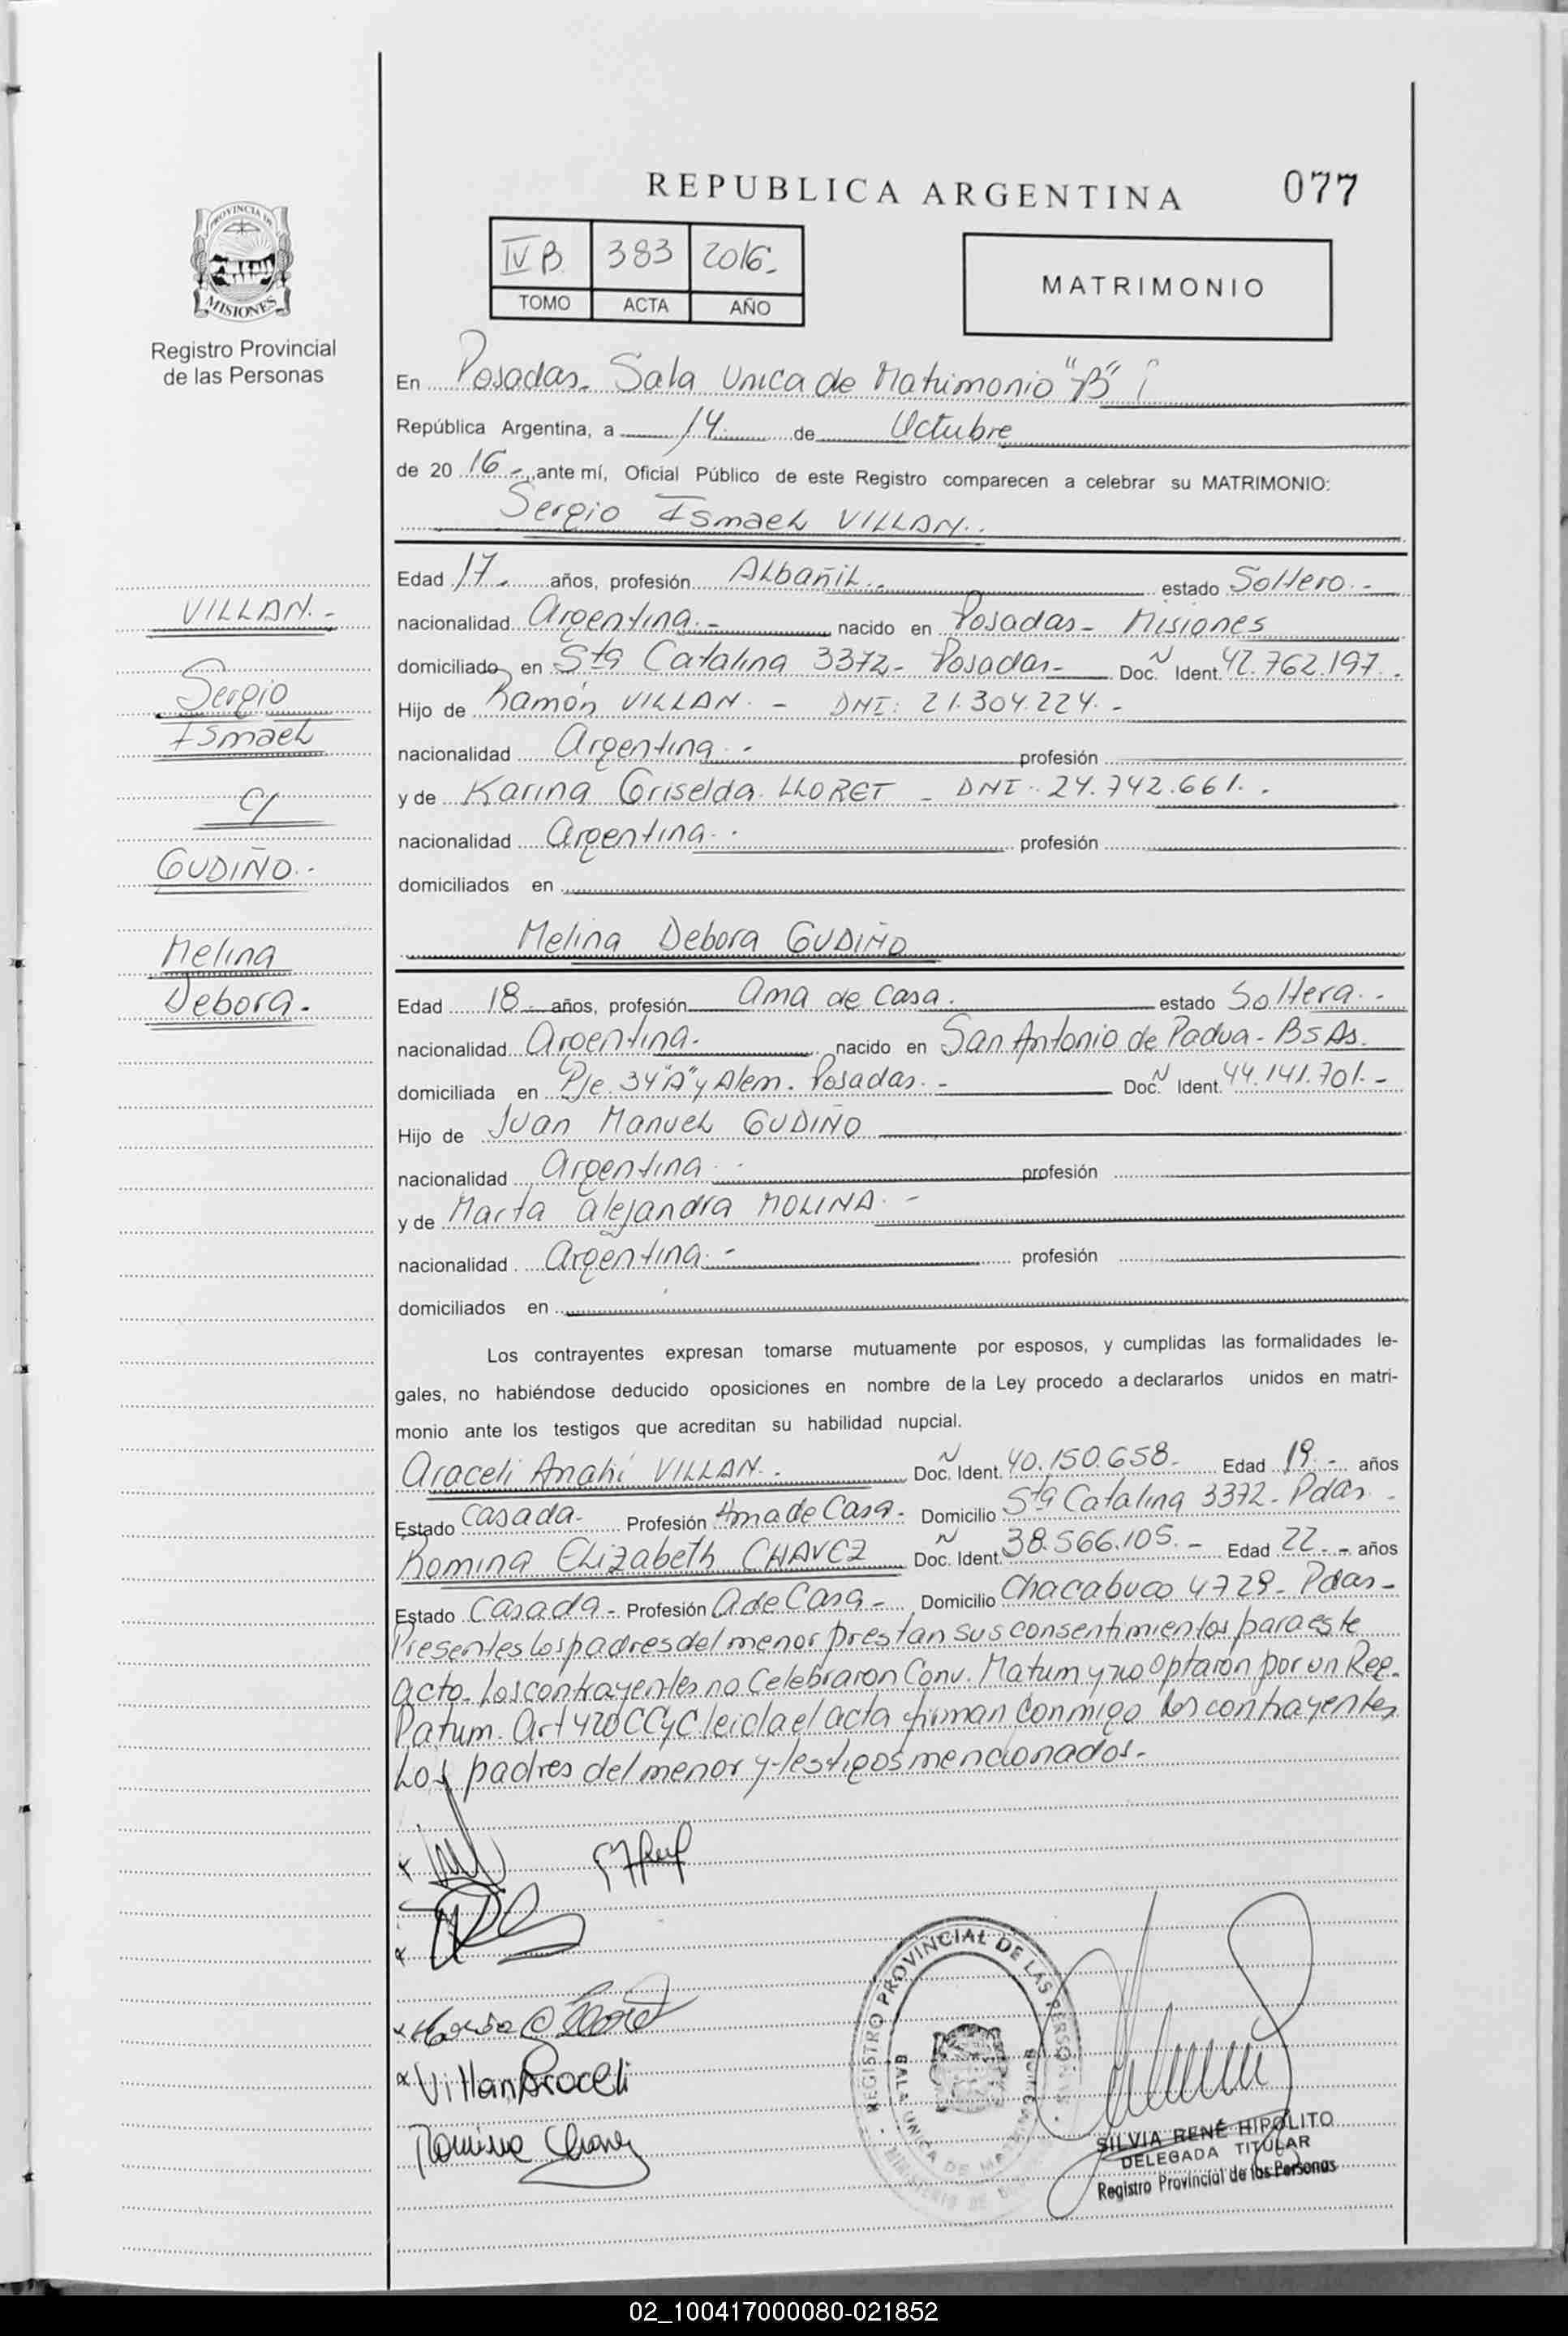 REPUBLICA ARGENTINA
077
PROVINCIA DE
MISIONES
Registro Provincial
de las Personas
IV B. 383 2016-
TOMO ACTA AÑO
MATRIMONIO
En Posadas- Sala Unica de Matrimonio "B"
República Argentina, a 14 de Octubre
de 20 16 - ,ante mí, Oficial Público de este Registro comparecen a celebrar su MATRIMONIO:
Sergio Ismael VILLAN.
Edad 17 - años, profesión Albañil.- estado Soltero.-
nacionalidad Argentina.- nacido en Posadas- Misiones
domiciliado en Sta Catalina 3372- Posadas- Doc. N Ident. 42.762.197.
Hijo de Ramón VILLAN. - DNI: 21.304.224.-
nacionalidad Argentina.- profesión
y de Karina Griselda LLORET - DNI: 24.742.661.-
nacionalidad Argentina.- profesión
domiciliados en
VILLAN.-
Sergio
Ismael
c/
GUDIÑO.-
Melina
Debora.
Melina Debora GUDIÑO
Edad 18 - años, profesión Ama de casa. estado Soltera.-
nacionalidad Argentina. nacido en San Antonio de Padua - Bs As.
domiciliada en Pje. 34 "A" y Alem. Posadas.- Doc. N Ident. 44.141.701.-
Hijo de Juan Manuel GUDIÑO
nacionalidad Argentina.- profesión
y de Marta alejandra MOLINA.-
nacionalidad Argentina.- profesión
domiciliados en
Los contrayentes expresan tomarse mutuamente por esposos, y cumplidas las formalidades le-
gales, no habiéndose deducido oposiciones en nombre de la Ley procedo a declararlos unidos en matri-
monio ante los testigos que acreditan su habilidad nupcial.
Araceli Anahí VILLAN. Doc. N Ident. 40.150.658- Edad 19.- años
Estado Casada- Profesión Ama de Casa- Domicilio Sta Catalina 3372- Pdas.-
Romina Elizabeth CHAVEZ Doc. N Ident. 38.566.105.- Edad 22.- años
Estado Casada- Profesión A de Casa- Domicilio Chacabuco 4728- Pdas-
Presentes los padres del menor prestan sus consentimientos para este
acto. Los contrayentes no Celebraron Conv. Matrim y no Optaron por un Reg.
Patrim. Art 420 CCyC. leida el acta firman conmigo los contrayentes
Los padres del menor y testigos mencionados.-
Villan Araceli
Romina Chavez
REGISTRO PROVINCIAL DE LAS PERSONAS
SALA UNICA DE
SILVIA RENÉ HIPÓLITO
DELEGADA TITULAR
Registro Provincial de las Personas
02_100417000080-021852